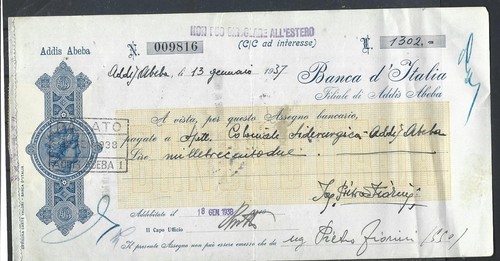 NON PUÒ CIRCOLARE ALL'ESTERO
Addis Abeba
N. 009816
(C/C ad interesse)
L. 1302,=
Addis Abeba, li 13 gennaio 1937
Banca d'Italia
Filiale di Addis Abeba
A vista, per questo Assegno bancario,
pagate a Spett. Coloniale Siderurgica - Addis Abeba
Lire milletrecentodue
ATO
1938
ADDIS ABEBA 1
Ing. Pietro Fiorini
Addebitato il 18 GEN. 1938
Il Capo Ufficio
Il presente Assegno non può essere emesso che da ing Pietro Fiorini (550)
OFFICINA CARTE-VALORI - BANCA D'ITALIA